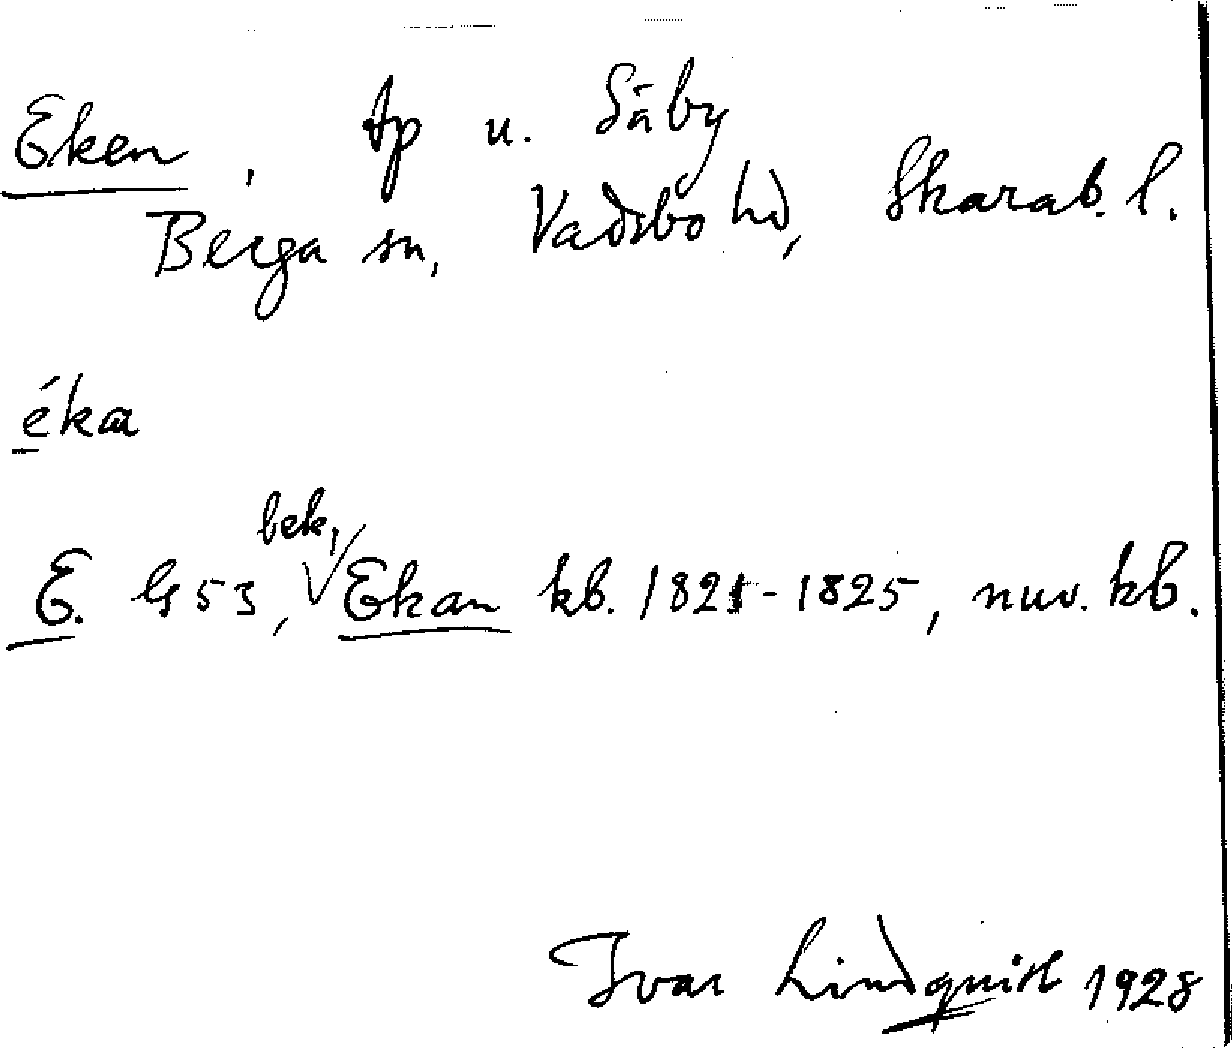 Eken, tp u. Säby
Berga sn, Vadsbo hd, Skarab. l.
éka
bek,
E. G 53, Ekan kb. 1821-1825, nuv. kb.
Ivar Lindquist 1928